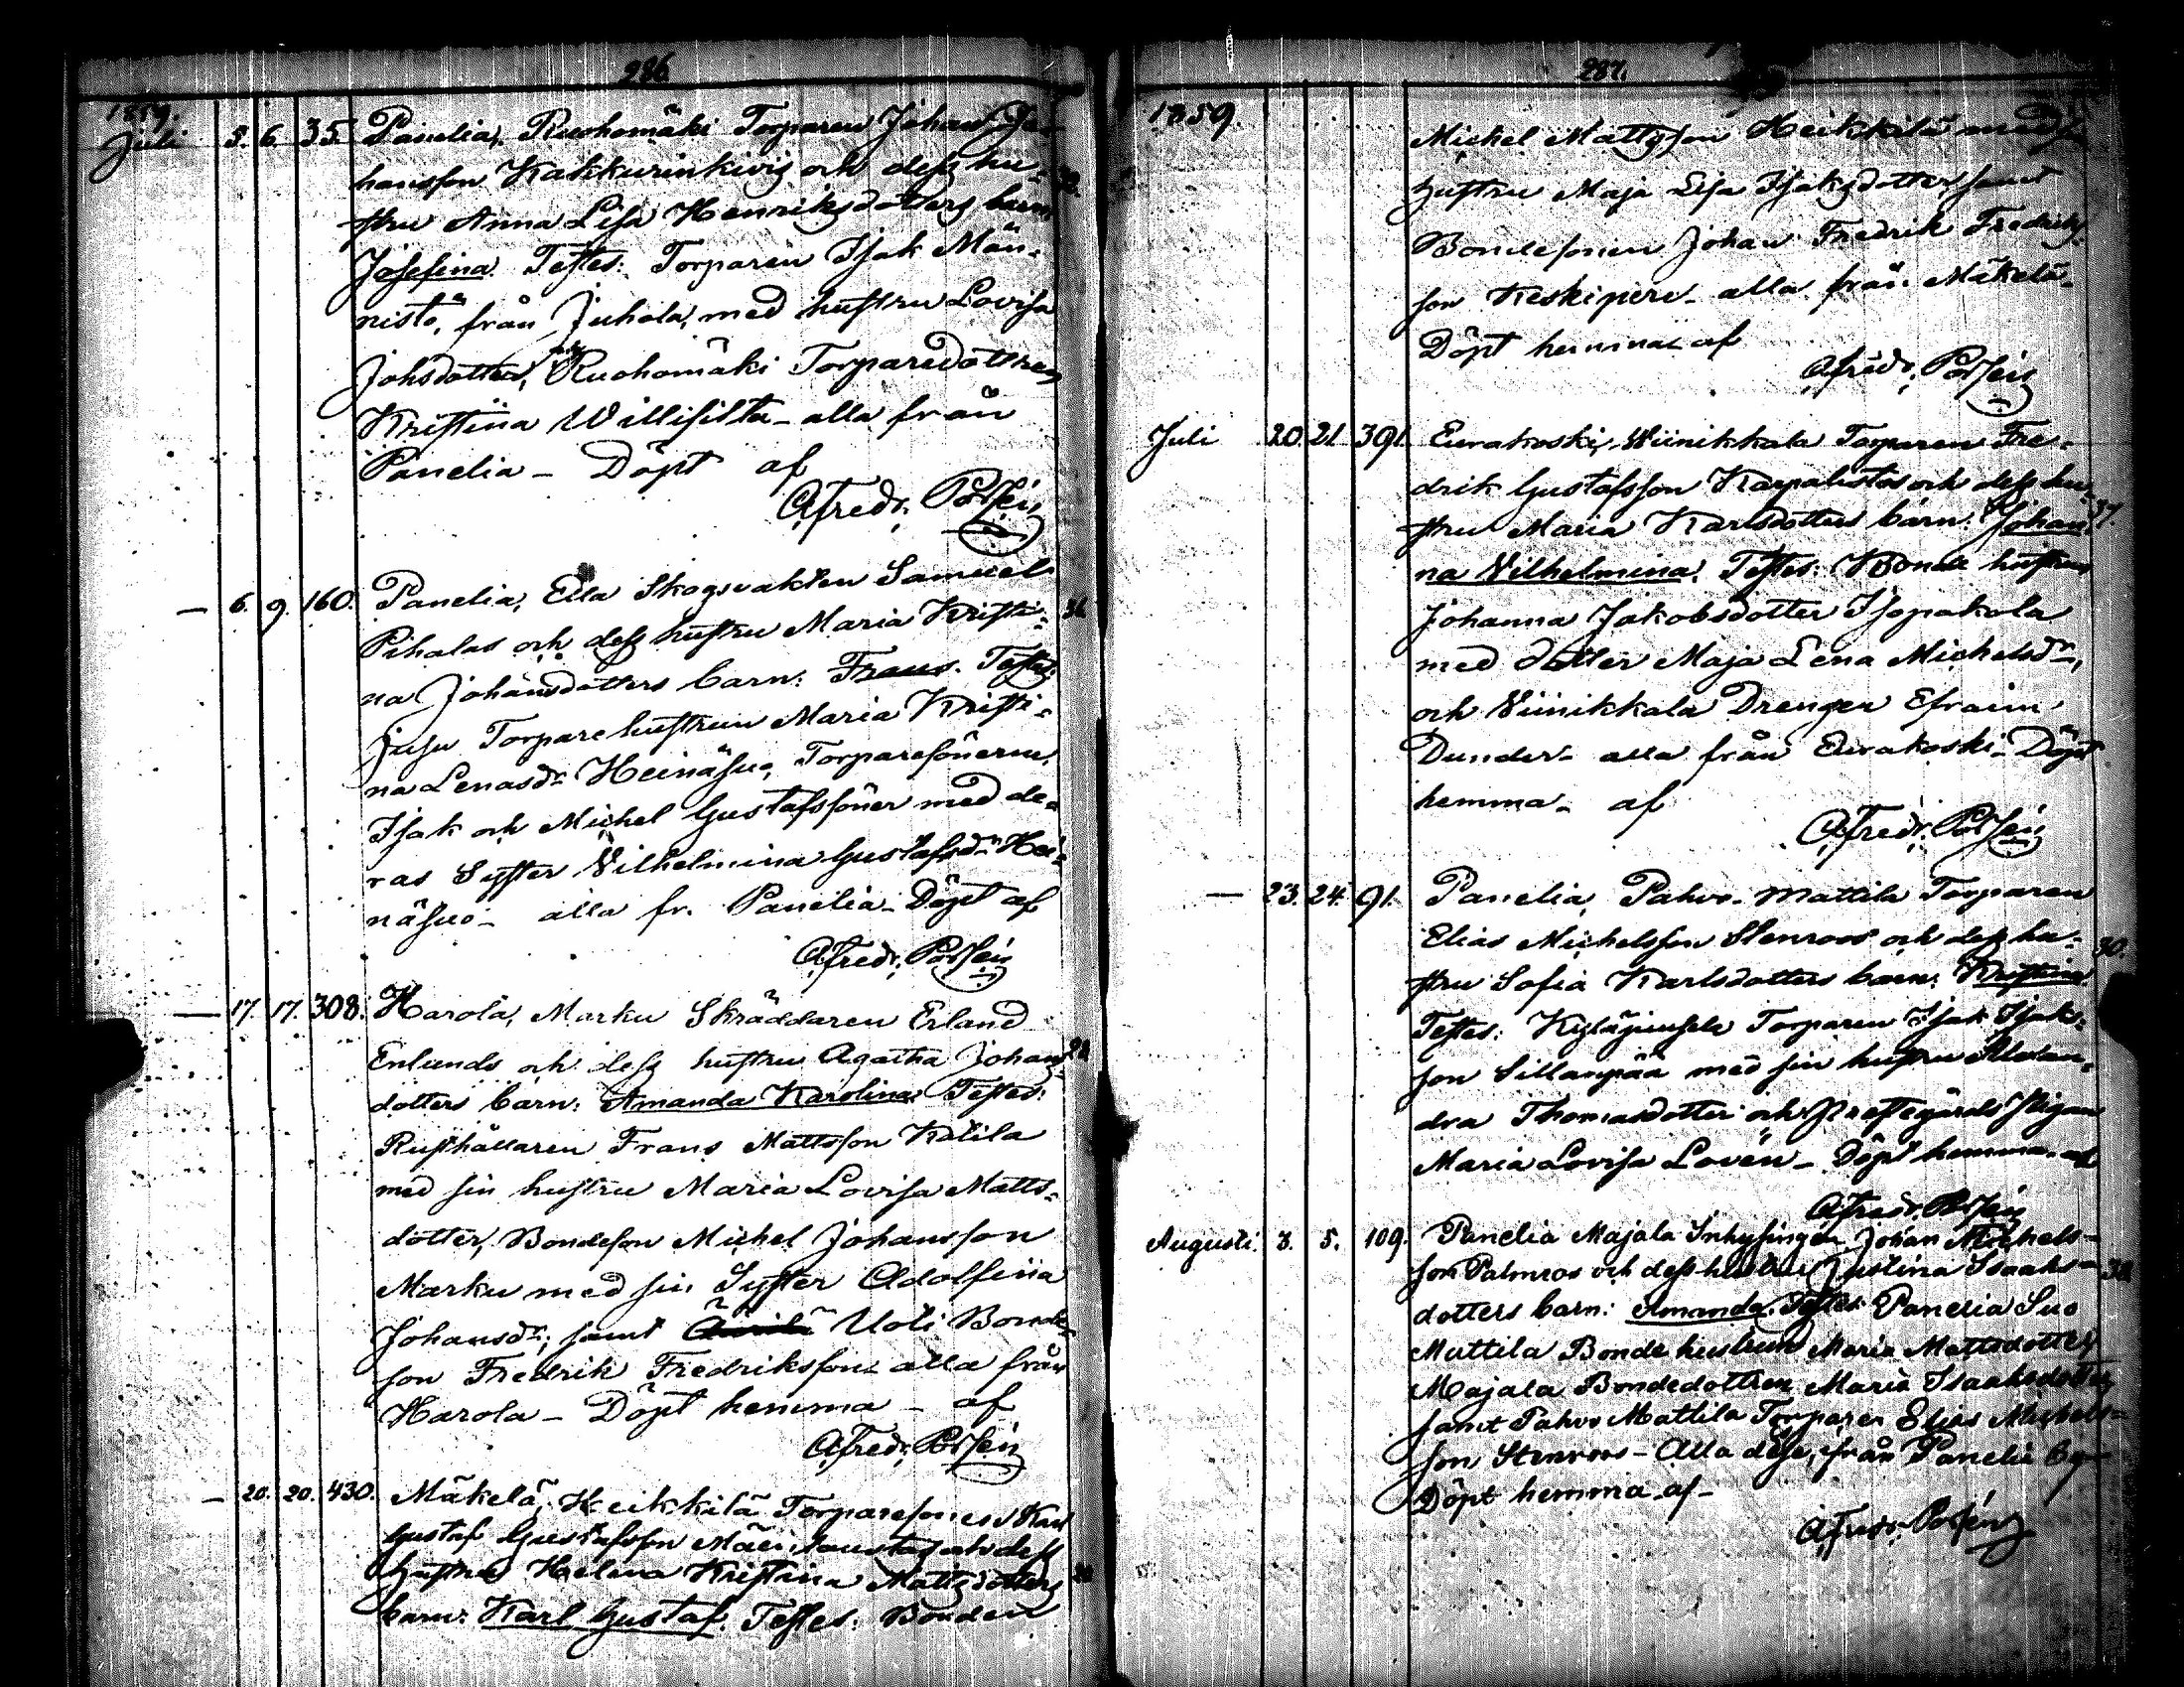 286
1859.
Juli 5. 6. 35. Panelia, Ruohomäki Torparen Johan Jo-
hansson Kakkurinkivis och dess hu-
stru Anna Lisa Henriksdotters barn
Josefina. Testes: Torparen Isak Män-
nistö, från Juhola, med hustru Lovisa
Johsdotter, Ruohomäki Torparedottren
Kristina Willisilta - alla från
Panelia - Döpt af
Afredr. Polsén
— 6. 9. 160. Panelia, Eila Skogvakten Samuel
Pihalas och dess hustru Maria Kristi- 36
na Johansdotters barn: Frans. Testes:
Jusu Torparehustrun Maria Kristi-
na Lenasdr Heinäsuo, Torparesönerne
Isak och Michel Gustafssöner med de-
ras Syster Vilhelmina Gustafsdr Hei-
näsuo - alla fr. Panelia - Döpt af
Afredr. Polsén
— 17. 17. 308. Harola, Marku Skräddaren Erland
Enlunds och dess hustru Agatha Johans- 28
dotters barn: Amanda Karolina. Testes:
Rusthållaren Frans Mattsson Katila
med sin hustru Maria Lovisa Matts-
dotter, Bondeson Michel Johansson
Marku med sin Syster Adolfina
Johansdr, samt Uoti Bonde-
son Fredrik Fredriksson - alla från
Harola - Döpt hemma - af
Afredr. Polsén
— 20. 20. 430. Mäkelä, Heikkilä Torparesonen Karl
Gustaf Gustafsson och dess
hustru Helena Kristina Mattsdotters
barn: Karl Gustaf. Testes: Bonden
287.
1859.
Michel Mattsson Heikkilä med sin
hustru Maja Lisa Isaksdotter samt
Bondesonen Johan Fredrik Fredriks-
son Keskipere - alla från Mäkelä -
Döpt hemma af
Afredr. Polsén
Juli 20. 21. 391. Eurakoski, Wiinikkala Torparen Fre-
drik Gustafsson Karpalistos och dess hu- 37.
stru Maria Karlsdotters barn: Johan-
na Vilhelmina. Testes: Bonde hustrun
Johanna Jakobsdotter Isopakola
med dotter Maja Lena Michelsdr,
och Viinikkala Drengen Efraim
Dunder - alla från Eurakoski - Döpt
hemma - af
Afredr. Polsén
— 23. 24. 91. Panelia, Pahvo-Mattila Torparen
Elias Michelsson Stenroos och dess hu- 30.
stru Sofia Karlsdotters barn: Kristina.
Testes: Torparen Isak Isaks-
son Sillanpää med sin hustru Alexan-
dra Thomasdotter och Prestegårds pigan
Maria Lovisa Lovén - Döpt hemma af
Afredr. Polsén
Augusti. 3. 5. 109. Panelia Majala Inhysingen Johan Michels-
son Palmros och dess hustru Justina Isaaks- 38
dotters barn: Amanda. Testes: Panelia Suo
Mattila Bonde hustrun Maria Mattsdotter,
Majala Bondedottren Maria Isaaksdotter
samt Pahvo Mattila Torparen Elias Michels-
son Stenroos - Alla desse, från Panelia by -
Döpt hemma af -
Afredr. Polsén